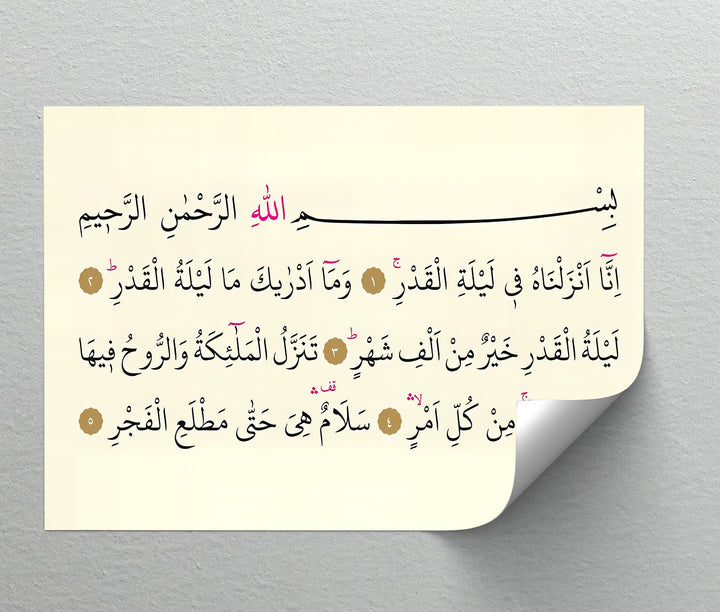 بِسْمِ اللّٰهِ الرَّحْمٰنِ الرَّح۪يمِ
اِنَّٓا اَنْزَلْنَاهُ ف۪ي لَيْلَةِ الْقَدْرِۚ ﴿١﴾ وَمَٓا اَدْرٰيكَ مَا لَيْلَةُ الْقَدْرِۜ ﴿٢﴾
لَيْلَةُ الْقَدْرِ خَيْرٌ مِنْ اَلْفِ شَهْرٍۜ ﴿٣﴾ تَنَزَّلُ الْمَلٰٓئِكَةُ وَالرُّوحُ ف۪يهَا
مِنْ كُلِّ اَمْرٍۙۛ ﴿٤﴾ سَلَامٌ۠ۛ قف هِيَ حَتّٰى مَطْلَعِ الْفَجْرِ ﴿٥﴾